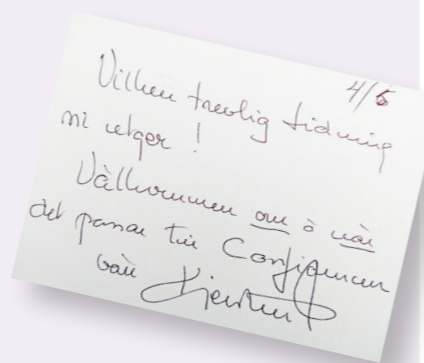 4/5
Vilken trevlig tidning
ni utger!
Välkommen om o när
det passar till Confidencen